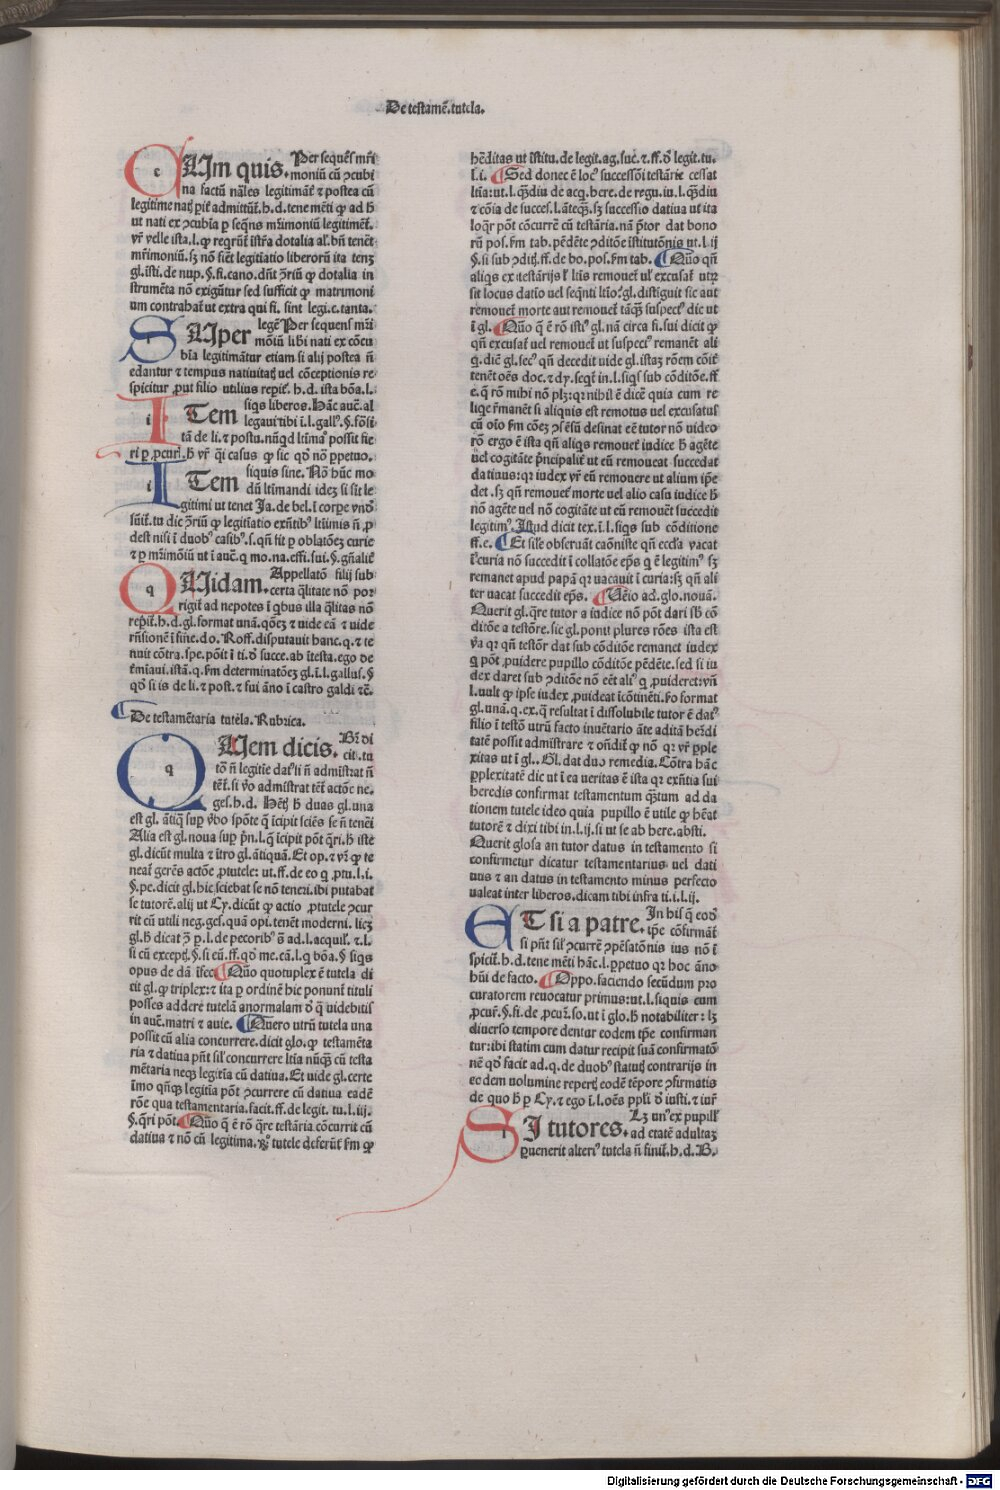 De testamẽ.tutela.
CUm quis. Per sequẽs mr̃i
moniũ cũ ↄcubi
na factũ nãles legitimãt̃ ⁊ postea cũ
legitime natꝭ pit̃ admittũt̃.h.d.tene mẽti ꝙ ad h̃
ut nati ex ↄcubĩa p seqñs mr̃imoniũ legitimẽt̃.
gl.isti.de nup.§.fi.cano.dñt ꝯ̃riũ ꝙ dotalia in
strumẽta nõ exigũtur sed sufficit ꝙ matrimoni
um contrahat̃ ut extra qui fi. sint legi.c.tanta.
SUper legẽ Per sequens mr̃i
mõiũ lib̃i nati ex cõcu
bĩa legitimãtur etiam si alij postea ñ
edantur ⁊ tempus natiuitatꝭ uel cõceptionis re
spicitur ꝓut filio utilius repit̃. h.d. ista bõa.l.
ITem siqs liberos. Hãc auc̃.al
legaui tibi ĩ.l.gall⁹.§.fõsi
tã de li.⁊ postu.nũqd ltĩma⁹ possit fie
ri ꝑ ꝓcur̃.h̃ vr̃ qi casus ꝙ sic qd̃ nõ ꝑpetuo.
ITem siquis sine. Nõ hũc mo
dũ ltĩmandi idez si sit le
gitimi ut tenet Ja.de bel.ĩ corꝑe vnd̃
dest nisi ĩ duob⁹ casib⁹.s.qñ sit ꝑ oblatõez curie
⁊ ꝑ mr̃imõiũ ut ĩ auc̃.q mo.na.effi.sui.§.gñalit̃
QUidam. Appellatõ filij sub
certa q̃litate nõ por
rigit̃ ad nepotes ĩ qbus illa q̃litas nõ
repit̃.h.d.gl.format unã.qõez ⁊ uide eã ⁊ uide
rñsionẽ ĩ fine.do.Roff.disputauit hanc.q.⁊ te
nuit cõtra.spe.põit ĩ ti.d̃ succe.ab ĩtesta.ego de
t̃miaui.istã.q.f̃m determinatõez gl.ĩ.l.gallus.§
qd̃ si is de li.⁊ post.⁊ fui ãno ĩ castro galdi ⁊c̃.
De testamẽtaria tutela. Rubrica.
QUem dicis. Br̃ di
cit.tu
tõ ñ legitĩe dat⁹ li ñ admĩstrat ñ
tẽt̃.si v̾o admĩstrat tẽt̃ actõe ne.
ges.h.d. Hẽtꝭ h̃ duas gl.una
est gl. ãtiq̃ suꝑ v̾bo spõte q̃ ĩcipit sciẽs se ñ tenẽi
Alia est gl.noua suꝑ pñ.l.q̃ ĩcipit põt q̃ri.h̃ iste
gl.dicũt multa ⁊ ĩtro gl.ãtiquã.Et op.⁊ vr̃ ꝙ te
neat̃ gerẽs actõe ꝓtutele: ut.ff.de eo q̃ ꝓtu.l.i.
§.pe.dicit gl.hic sciebat se nõ teneri.ibi putabat
se tutorẽ.alij ut Cy.dicũt ꝙ actio ꝓtutele ↄcur
rit cũ utili neg.gest̃.quã opi.tenẽt moderni. licz
gl.h̃ dicat ꝯ̃ p.l.de pecorib⁹ õ ad.l.acquil̃.⁊.l.
si cũ exceptꝭ.§.si cũ.ff.qd̃ me.cã.l.q̃ bõa.§ siqs
opus de dã ĩfec̃. Quo quotuplex ẽ tutela di
cit gl.ꝙ triplex:⁊ ita ꝑ ordinẽ hic ponunt̃ tituli
posses addere tutelã anormalam d̃ q̃ uidebitis
in auc̃.matri ⁊ auie. Quero utrũ tutela una
possit cũ alia concurrere.dicit glo.ꝙ testamẽta
ria ⁊ datiua pñt sil̃ concurrere ltĩa nũq̃ cũ testa
mẽtaria neqꝫ legitĩa cũ datiua.Et uide gl.certe
ĩmo qñqꝫ legitĩa põt ↄcurrere cũ datiua eadẽ
rõe qua testamentaria.facit.ff.de legit. tu.l.iij.
§.q̃ri põt. Quo q̃ ẽ rõ q̃re testãria cõcurrit cũ
datiua ⁊ nõ cũ legitima.Rẽ⁹ tutele deferũt̃ f̃m ꝙ
hẽditas ut ĩstitu.de legit.ag.suc̃.⁊.ff.d̃ legit.tu.
l.i. Sed donec ẽ loc⁹ successõi testãrie cessat
ltĩa:ut.l.q̃diu de acq.here.de regu.iu.l.q̃diu
⁊ cõia de succes.l.ãteqꝫ.sꝫ successio datiua ut ita
loqr̃ põt cõcurrẽ cũ testãria.nã p̃tor dat bono
rũ pos.f̃m tab.pẽdẽte ↄditõe ĩstitutõnis ut.l.ij
§.si sub ↄditꝭ.ff.de bo.pos.f̃m tab. Quo qñ
aliqs ex testãrijs l̃ ltĩis remouet̃ ul̃ excusat̃ utꝝ
sit locus datĩo uel seq̃nti ltĩo.⁹gl.distĩguit sic aut
remouet̃ morte aut remouet̃ tãqꝫ suspect⁹ dic ut
ĩ gl. Quo q̃ ẽ rõ isti⁹ gl.nã circa fi.sui dicit ꝙ
qñ excusat̃ uel remouet̃ ut suspect⁹ remanẽt ali
q.diẽ gl.sec⁹ qñ decedit uide gl.istaz rõem cõit̃
tenẽt oẽs doc.⁊ dy.seqt̃ in.l.siqs sub cõditõe.ff
e.q̃ rõ mihi nõ plꝫ:qꝛ nihil ẽ dicẽ quia cum re
liqe r̃manẽt si aliquis est remotus uel excusatus
cũ oĩo f̃m cõez ↄsẽsũ desinat eẽ tutor nõ uideo
rõ ergo ẽ ista qñ aliqs remouet̃ iudice h̃ agẽte
uel cogitãte p̃ncipalit̃ ut eũ remoueat succedat
datinus:qꝛ iudex vr̃ eũ remouere ut alium ip̃e
det.sꝫ qñ remouet̃ morte uel alio casu iudice h̃
nõ agẽte uel nõ cogitãte ut eũ remouẽt succedit
legitim⁹. Istud dicit tex.ĩ.l.siqs sub cõditione
ff.e. Et sil̃e obseruãt caõniste qñ eccl̃ia vacat
ĩ curia nõ succedit ĩ collatõe ep̃s q̃ ẽ legitim⁹ sꝫ
remanet apud papã qꝛ uacauit ĩ curia:sꝫ qñ ali
ter uacat succedit ep̃s. Uẽio ad.glo.nouã.
Querit gl.q̃re tutor a iudice nõ põt dari sb̃ cõ
ditõe a testõre.sic gl.ponit plures rões ista est
v̾a qꝛ qñ testõr dat sub cõditõe remanet iudex
q̃ põt ꝓuidere pupillo cõditõe pẽdẽte.sed si iu
dex daret sub ↄditõe nõ eẽt ali⁹ q̃ ꝓuideret:vñ
l.uult ꝙ ipse iudex ꝓuideat icõtinẽti.Fo format
gl.unã.q.ex.q̃ resultat ĩ dissolubile tutor ẽ dat⁹
filio ĩ testõ utrũ facto inuẽtario ãte aditã herd̃i
tatẽ possit admĩstrare ⁊ oñdit̃ ꝙ nõ qꝛ vr̃ ꝑple
xitas ut ĩ gl..Gl.dat duo remedia. Cõtra hãc
ꝑplexitatẽ dic ut ĩ ea ueritas ẽ ista qꝛ exñtia sui
heredis confirmat testamentum q̃tum ad da
tionem tutele ideo quia pupillo ẽ utile ꝙ hẽat
tutorẽ ⁊ dixi tibi in.l.ij.si ut se ab here.absti.
Querit glosa an tutor datus in testamento si
confirmetur dicatur testamentarius uel dati
uus ⁊ an datus in testamento minus perfecto
ualeat inter liberos.dicam tibi infra ti.i.l.ij.
ET si a patre. In his q̃ eod̃
ip̃e cõfirmãt̃
si pñt sil̃ ↄcurrẽ ↄpẽsatõnis ius nõ ĩ
spicit̃.h.d.tene mẽti hãc.l.ꝑpetuo qꝛ hoc ãno
hũi de facto. Oppo.faciendo secũdum pro
curatorem reuocatur primus:ut.l.siquis cum
ꝓcur̃.§.fi.de ꝓcur̃.so.ut ĩ glo.h̃ notabiliter: lꝫ
diuerso tempore dentur eodem tp̃e confirman
tur:ibi statim cum datur recipit suã confirmatõ
nẽ qd̃ facit ad.q.de duob⁹ statutꝭ contrarijs in
eodem uolumine repertꝭ eodẽ tẽpore ↄfirmatis
de quo h̃ ꝑ Cy.⁊ ego ĩ.l.oẽs ppl̃i d̃ iusti.⁊ iur̃
SI tutores. Lꝫ un⁹ ex pupill̃
ad etatẽ adultaz
ꝑuenerit alteri⁹ tutela ñ finit̃.h.d.B.
Digitalisierung gefördert durch die Deutsche Forschungsgemeinschaft - DFG